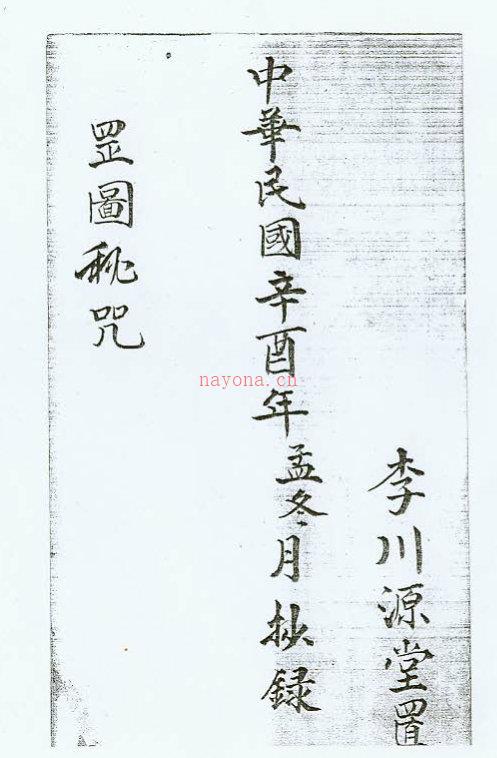 李川源堂置
中華民國辛酉年孟冬月抄録
罡圖秘咒
nayona.cn